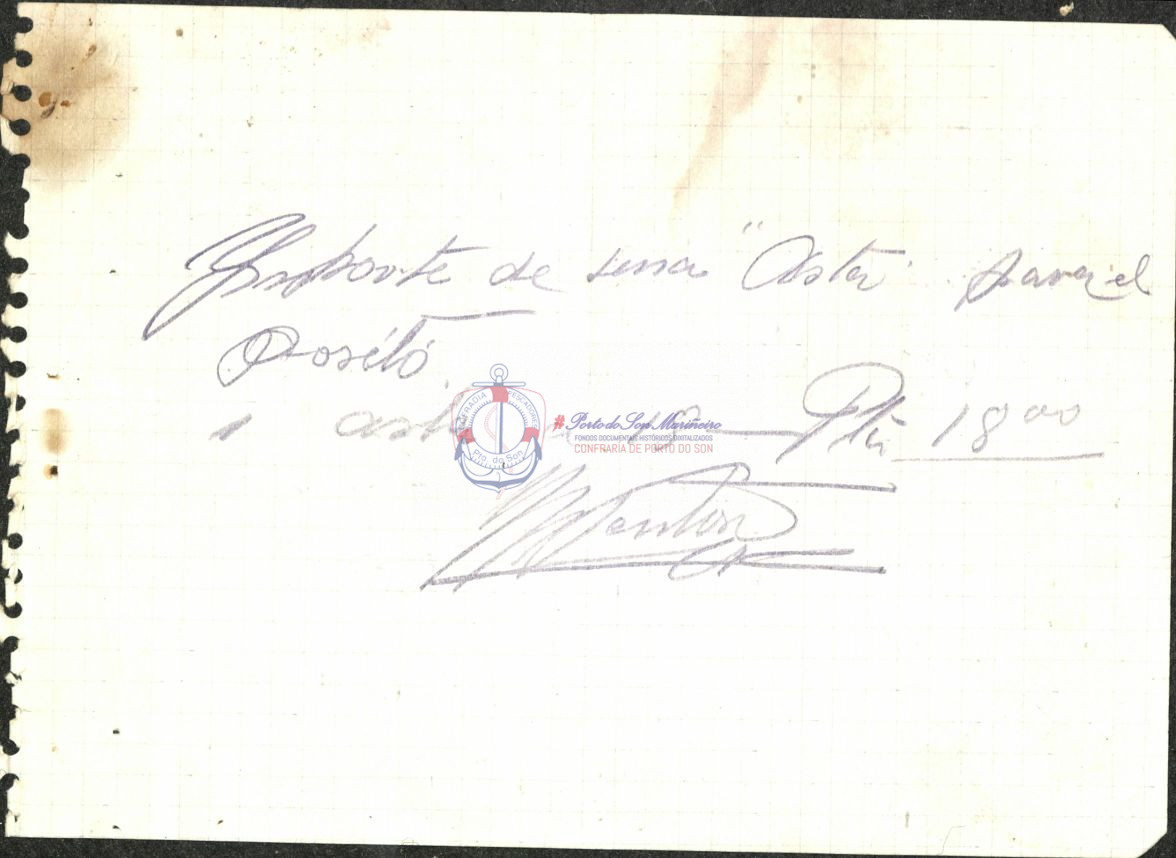 Importe de una "Asta" para el
Posito.
1 asta
Pta 18 00
CONFRADIA PESCADORES
Pto. do Son
#Porto do Son Mariñeiro
FONDOS DOCUMENTAIS HISTÓRICOS DIXITALIZADOS
CONFRARÍA DE PORTO DO SON